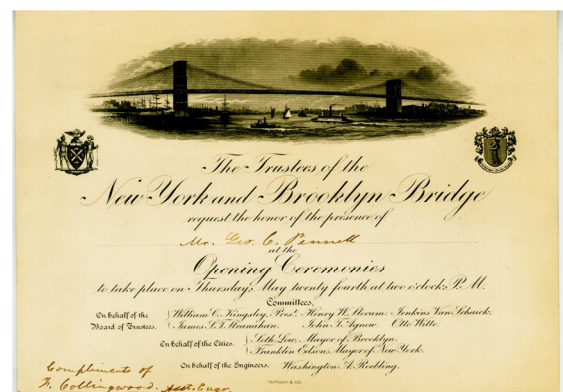 The Trustees of the
New York and Brooklyn Bridge
request the honor of the presence of
Mr. Geo. C. Pennell
at the
Opening Ceremonies
to take place on Thursday, May twenty fourth at two o'clock P.M.
Committees,
On behalf of the Board of Trustees. William C. Kingsley, Prest. Henry W. Slocum. Jenkins Van Schaick.
James S.T. Stranahan. John T. Agnew. Otto Witte.
On behalf of the Cities. Seth Low, Mayor of Brooklyn.
Franklin Edson, Mayor of New York.
On behalf of the Engineers. Washington A. Roebling.
Compliments of
F. Collingwood. Asst. Engr.
TIFFANY & CO.